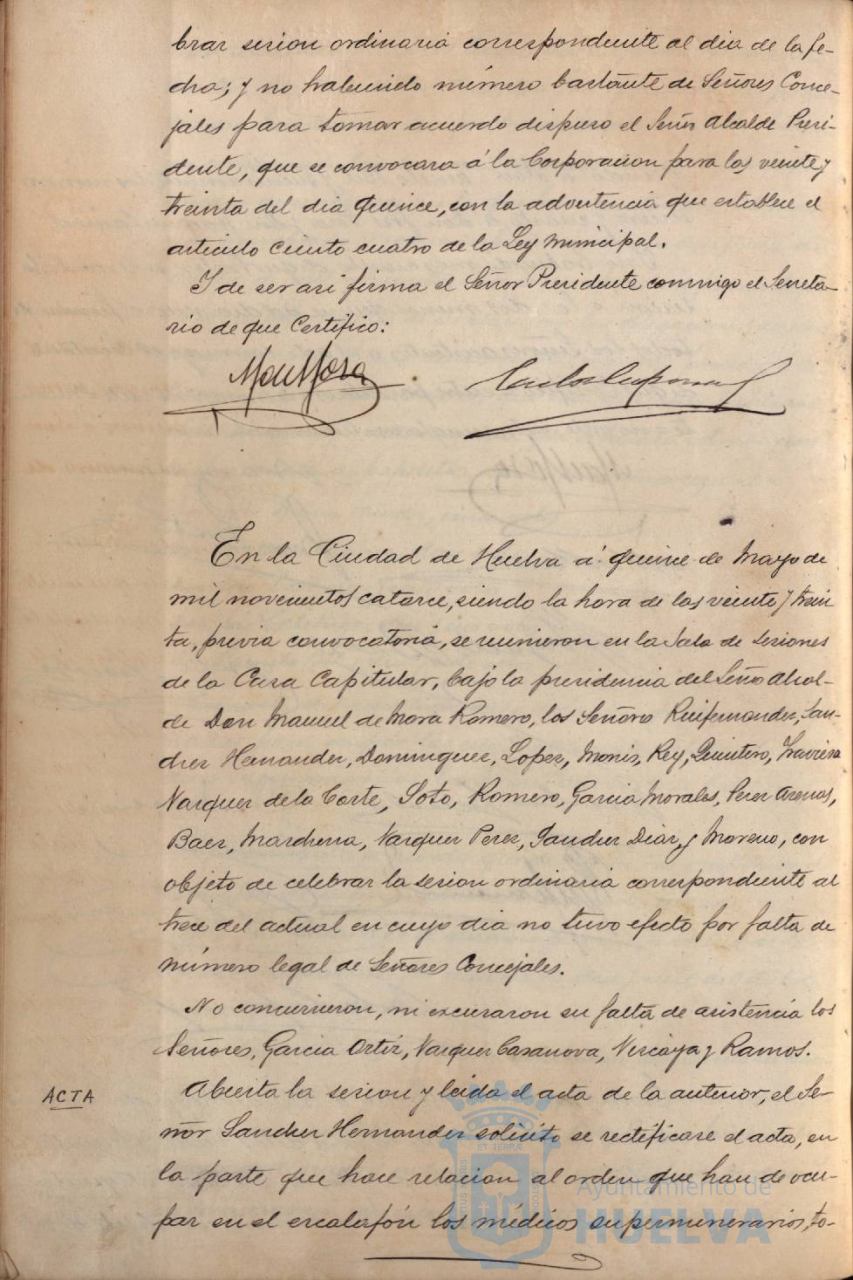 brar sesion ordinaria correspondiente al dia de la fe-
cha; y no habiendo número bastante de Señores Conce-
jales para tomar acuerdo dispuso el Señor Alcalde Presi-
dente, que se convocara á la Corporacion para las veinte y
treinta del dia quince, con la advertencia que establece el
articulo ciento cuatro de la Ley Municipal.
Y de ser asi firma el Señor Presidente conmigo el Secreta-
rio de que Certifico:
En la Ciudad de Huelva á quince de Mayo de
mil novecientos catorce, siendo la hora de las veinte y trein
ta, previa convocatoria, se reunieron en la Sala de Sesiones
de la Casa Capitular, bajo la presidencia del Señor Alcal-
de Don Manuel de Mora Romero, los Señores Ruifernandez, San-
chez Hernandez, Dominguez, Lopez, Monis, Rey, Quintero, Travieso
Vazquez de la Corte, Soto, Romero, Garcia Morales, Perez Arenas,
Baez, Marchena, Vazquez Perez, Sanchez Diaz, y Moreno, con
objeto de celebrar la sesion ordinaria correspondiente al
trece del actual en cuyo dia no tuvo efecto por falta de
número legal de Señores Concejales.
No concurrieron, ni excusaron su falta de asistencia los
Señores, Garcia Ortiz, Vazquez Casanova, Vizcaya y Ramos.
ACTA
Abierta la sesion y leida el acta de la anterior, el Se-
ñor Sanchez Hernandez solicito se rectificase el acta, en
la parte que hace relacion al orden que han de ocu-
par en el escalafón los medicos supernumerarios, to-
Ayuntamiento de
HUELVA